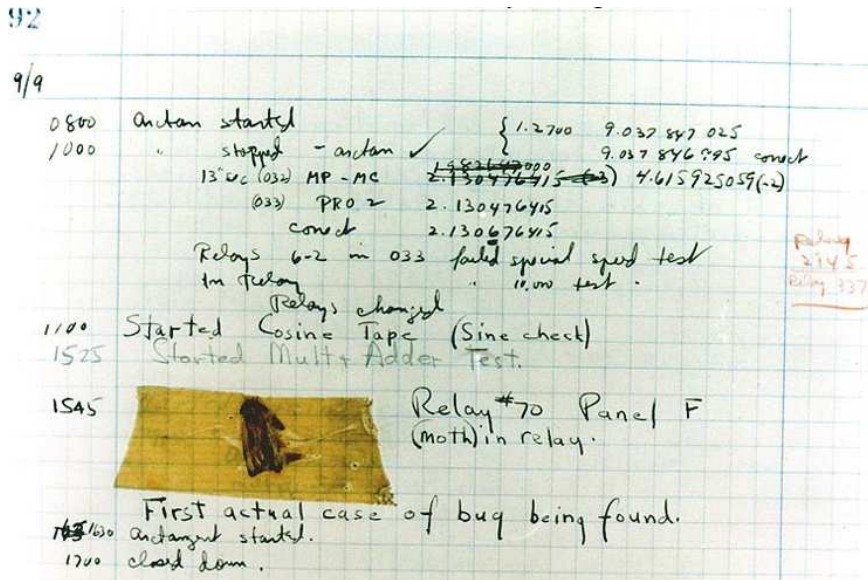 92
9/9
0800 arctan started { 1.2700 9.037 847 025
1000 " stopped - arctan ✓ 9.037 846 995 conect
13" uc (032) MP - MC 2.130476415 (-3) 4.615925059(-2)
(033) PRO 2 2.130476415
conect 2.130676415
Relays 6-2 in 033 failed special speed test
In Relay " 10.000 test.
Relays changed
Relay
Relay 337
1100 Started Cosine Tape (Sine check)
1525 Started Mult + Adder Test.
1545 Relay #70 Panel F
(moth) in relay.
First actual case of bug being found.
1630 arctangent started.
1700 closed down.